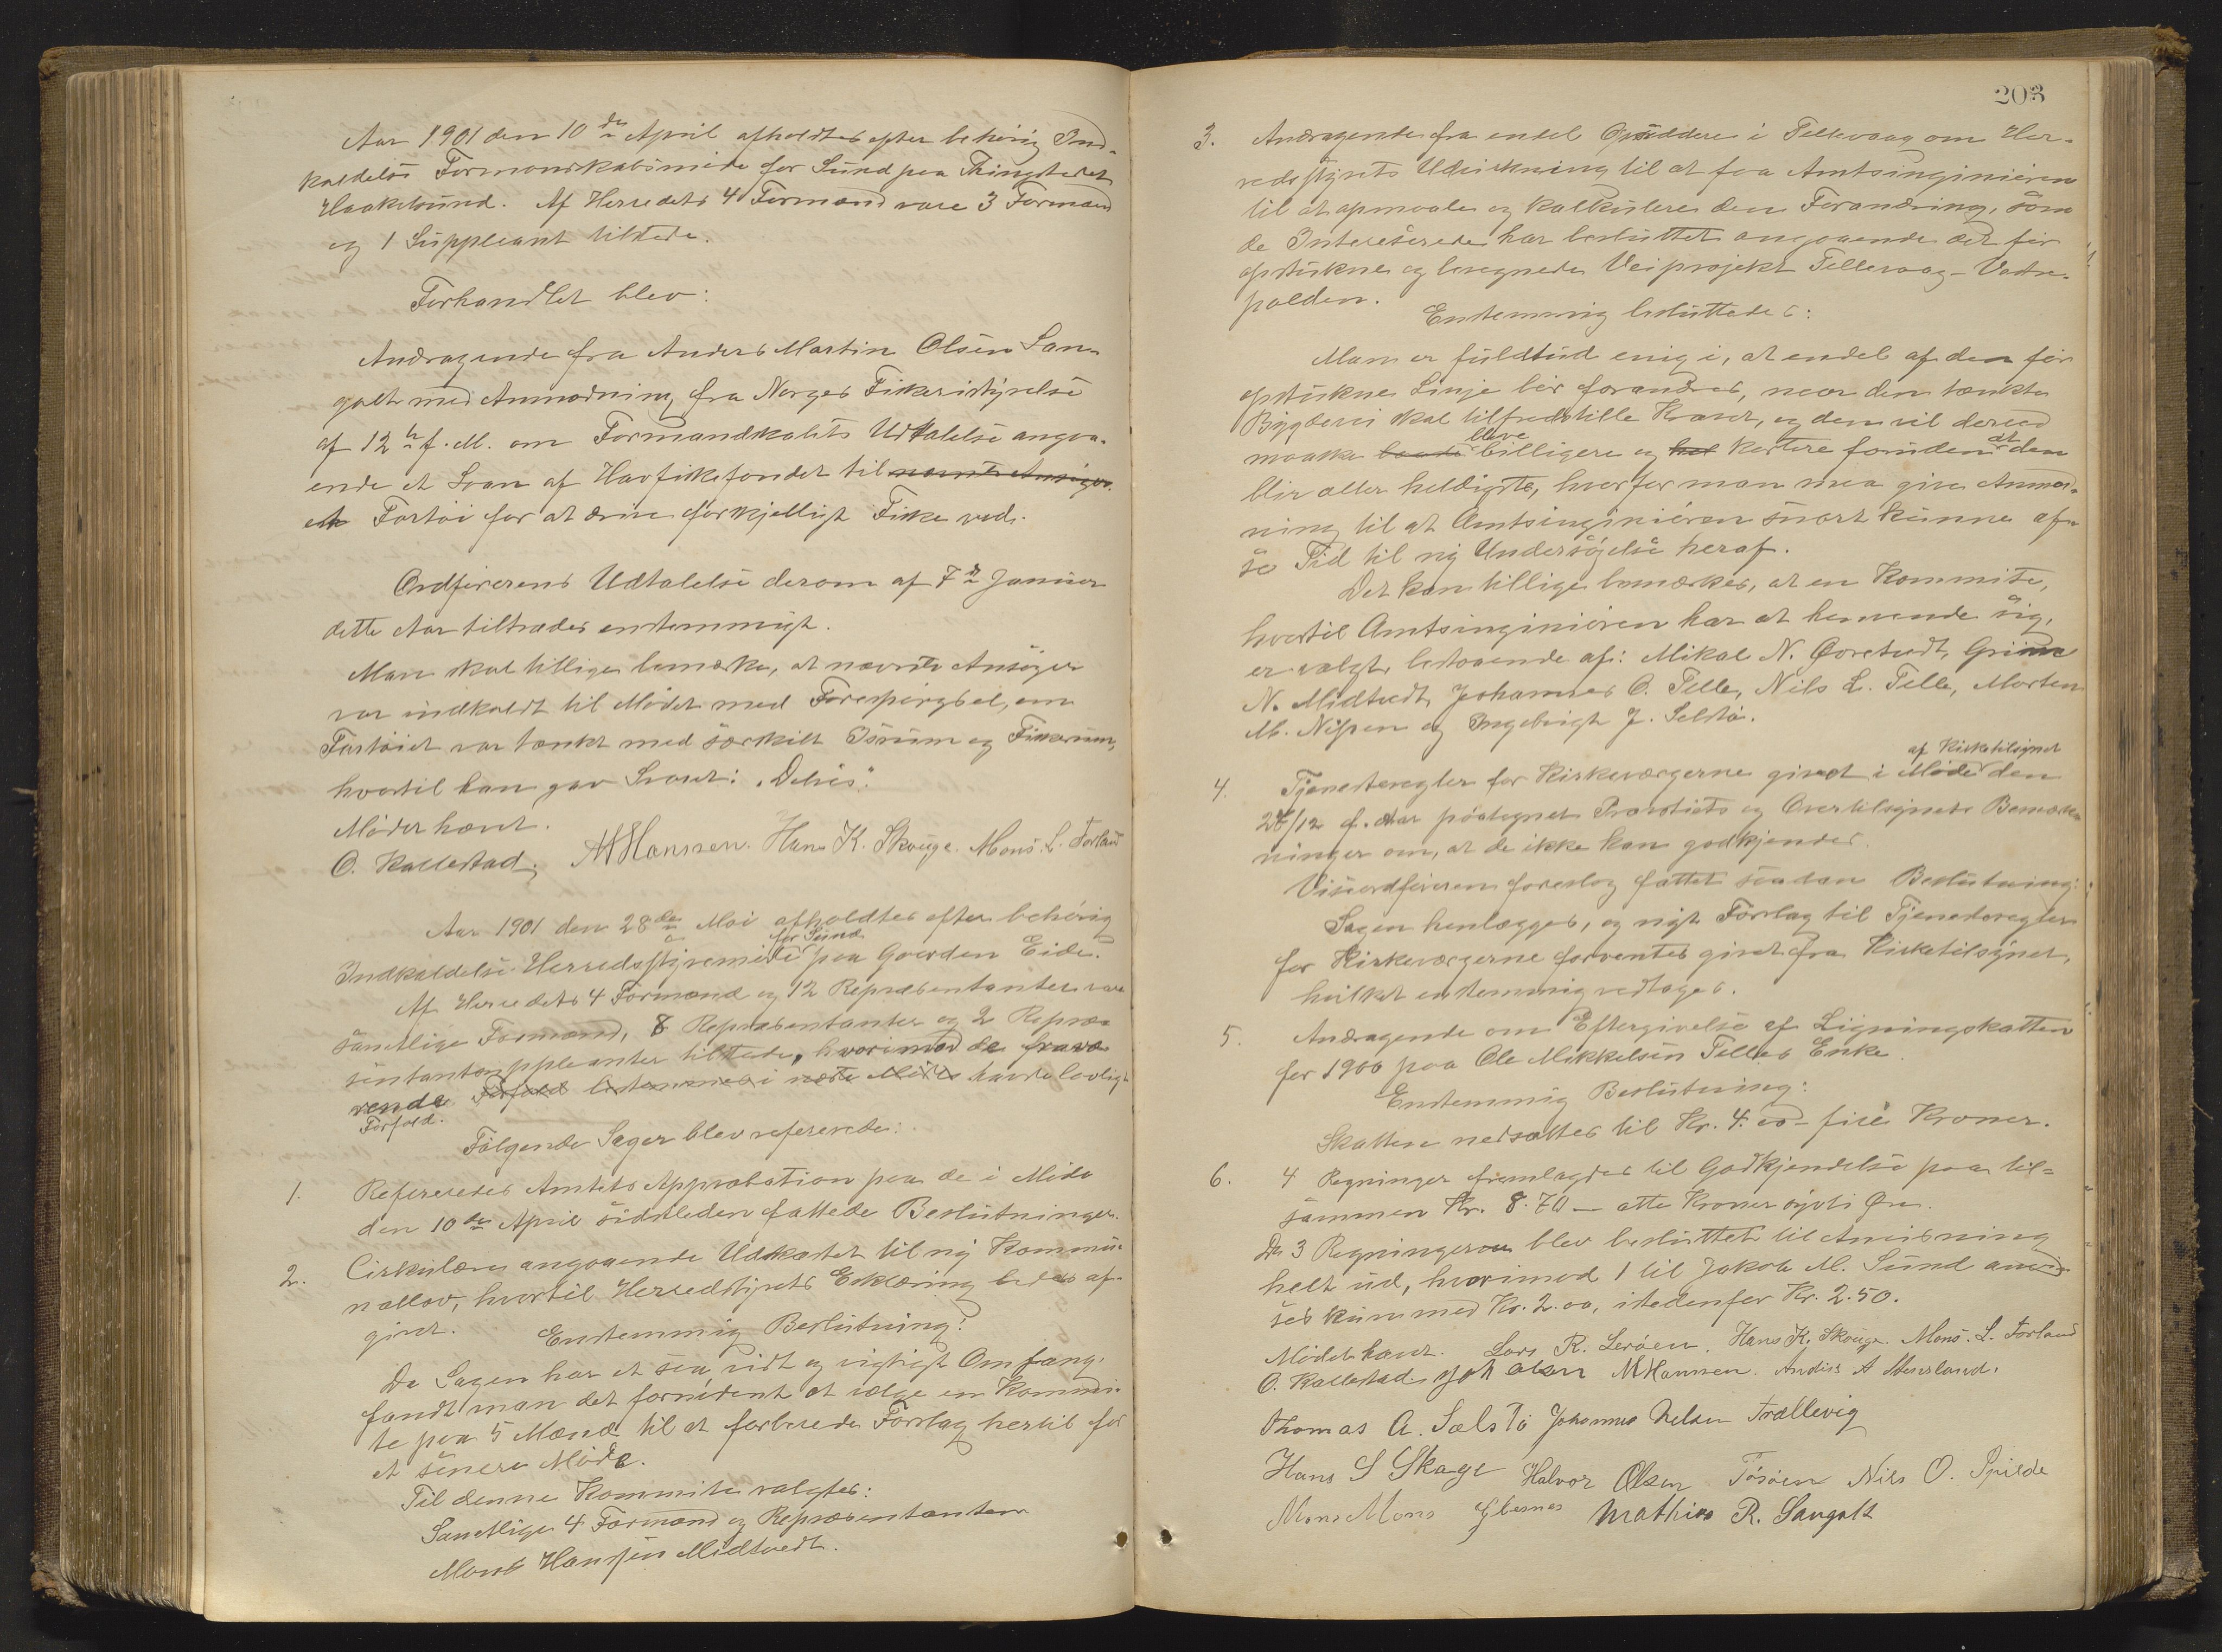 Aar 1901 den 10de April afholdtes efter behörig Ind-
kaldelse Formandskabsmöde for Sund paa Thingstedet
Haakelsund. Af Herredets 4 Formænd vare 3 Formænd
og 1 Suppleant tilstede.
Forhandlet blev:
Andragende fra Anders Martin Olsen San-
galt med Anmodning fra Norges Fiskeristyrelse
af 12te f. M. om Formandskabets Udtalelse angaa-
ende et Laan af Havfiskefondet til nævnte Ansöger
et Fartöi for at drive forskjelligt Fiske med.
Ordförerens Udtalelse derom af 7de Januar
dette Aar tiltrædes enstemmigt.
Man skal tillige bemærke, at nævnte Ansöger
var indkaldt til Mödet med Forespörgsel, om
Fartöiet var tænkt med særskilt Isrum og Fiskerum,
hvortil han gav Svaret: "Delvis".
Mödet hævet.
O. Kallestad. M Hanssen. Hans K. Skouge. Mons. L. Forland
Aar 1901 den 28de Mai afholdtes efter behörig
for Sund
Indkaldelse Herredsstyremöde paa Gaarden Eide.
Af Herredets 4 Formænd og 12 Repræsentanter vare
samtlige Formænd, 8 Repræsentanter og 2 Repræ-
sentantsuppleanter tilstede, hvorimod de fravæ-
rende Forfald bestemmes i næste Möde havde lovligt
Forfald.
Fölgende Sager blev refererede:
1. Refereredes Amtets Approbation paa de i Möde
den 10de April sidstleden fattede Beslutninger.
2. Cirkulære angaaende Udkastet til ny Kommu-
nallov, hvortil Herredsstyrets Erklæring bedes af-
givet. Enstemmig Beslutning:
Da Sagen har et saa vidt og vigtigt Omfang,
fandt man det fornödent at vælge en Kommi-
te paa 5 Mænd til at forberede Forslag hertil for
et senere Möde.
Til denne Kommite valgtes:
Samtlige 4 Formænd og Repræsentanten
Mons Hanssen Midtvedt.
203
3. Andragende fra endel Opsiddere i Tellevaag om Her-
redsstyrets Udvirkning til at faa Amtsingeniören
til at opmaale og kalkulere den Forandring, som
de Interesserede har besluttet angaaende det för
opstukne og beregnede Veiprojekt Tellevaag - Vestre-
polden.
Enstemmig besluttedes:
Man er fuldtud enig i, at endel af den för
opstukne Linje bör forandres, naar den tænkte
Bygdevei skal tilfredsstille Kravet, og den vil derved
blive at
maaske baade billigere og hel kortere foruden den
blir aller heldigste, hvorfor man maa give Anmod-
ning til at Amtsingeniören snart kunne af-
se Tid til ny Undersögelse heraf.
Det kan tillige bemærkes, at en Kommite,
hvortil Amtsingeniören har at henvende sig,
er valgt, bestaaende af: Mikal N. Övretvedt, Grim
N. Midtvedt, Johannes O. Telle, Nils L. Telle, Morten
M. Nissen og Ingebrigt J. Selstö.
af Kirketilsynet
4. Tjenesteregler for Kirkeværgerne givet i Möde den
28/12 f. Aar paategnet Provstiets og Overtilsynets Bemærk-
ninger om, at de ikke kan godkjendes.
Viseordföreren foreslog fattet saadan Beslutning:
Sagen henlægges, og nyt Forslag til Tjenesteregler
for Kirkeværgerne forventes givet fra Kirketilsynet,
hvilket enstemmig vedtages.
5. Andragende om Eftergivelse af Ligningsskatten
for 1900 paa Ole Mikkelsen Telles Enke.
Enstemmig Beslutning:
Skatten nedsættes til Kr. 4.00 - fire Kroner.
6. 4 Regninger fremlagdes til Godkjendelse paa til-
sammen Kr. 8.70 - otte Kroner sytti Öre.
De 3 Regningerne blev besluttet til Anvisning
helt ud, hvorimod 1 til Jakob M. Sund anvi-
ses kun med Kr. 2.00, istedenfor Kr. 2.50.
Mödet hævet. Lars R. Leröen. Hans K. Skouge. Mons. L. Forland
O. Kallestad Joh Olsen M Hanssen. Anders A
Thomas A. Sælstö Johannes Nelsen Trællevig
Hans S Skage Halvor Olsen Tösöen Nils O. Spilde
Mons Mons Glesnes Mathias R. Sangolt